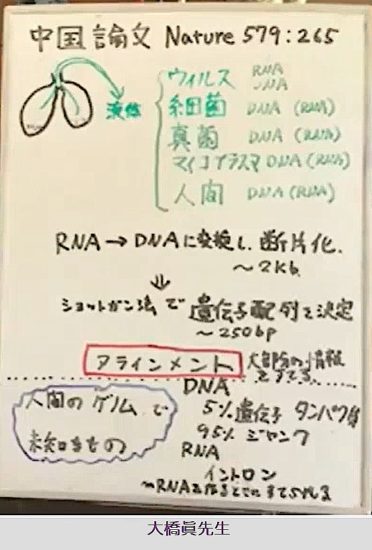 中国論文 Nature 579:265
液体
ウィルス RNA DNA
細菌 DNA (RNA)
真菌 DNA (RNA)
マイコプラズマ DNA (RNA)
人間 DNA (RNA)
RNA→DNAに変換し、断片化、
～2Kb.
⇓
ショットガン法で遺伝子配列を決定
～250bp
アラインメント 大部分の情報
をすてる。
DNA
人間のゲノムで
未知なもの
5%遺伝子 タンパク質
95%ジャンク
RNA
イントロン
mRNAを作るときにすてられる
大橋眞先生